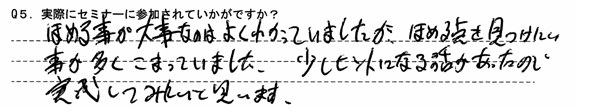 Q5. 実際にセミナーに参加されていかがですか?
ほめる事が大事なのはよくわかっていましたが、ほめる点を見つけにくい
事が多くこまっていました。少しヒントになる話があったので
実践してみたいと思います。